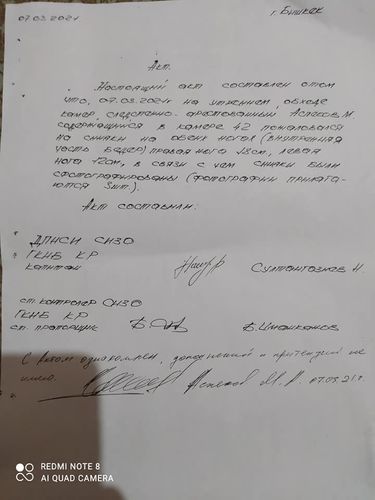 07.03.2021
г. Бишкек
Акт.
Настоящий акт составлен о том
что, 07.03.2021г на утреннем, обходе
камер, следственно-арестованный Аспеков М.
содержащийся в камере 42 пожаловался
на синяки на обеих ногах (внутренняя
часть бедер) правая нога 13см, левая
нога 12см, в связи с чем синяки были
сфотографированы (фотографии прилага-
ются 3шт.).
Акт составили:
ДПНСИ СИЗО
ГКНБ КР
капитан Султангазиев Н.
ст. контролер СИЗО
ГКНБ КР
ст. прапорщик Б. Иманканов
С Актом ознакомлен, дополнений и претензий не
имею. Аспеков М. 07.03.21г.
REDMI NOTE 8
AI QUAD CAMERA